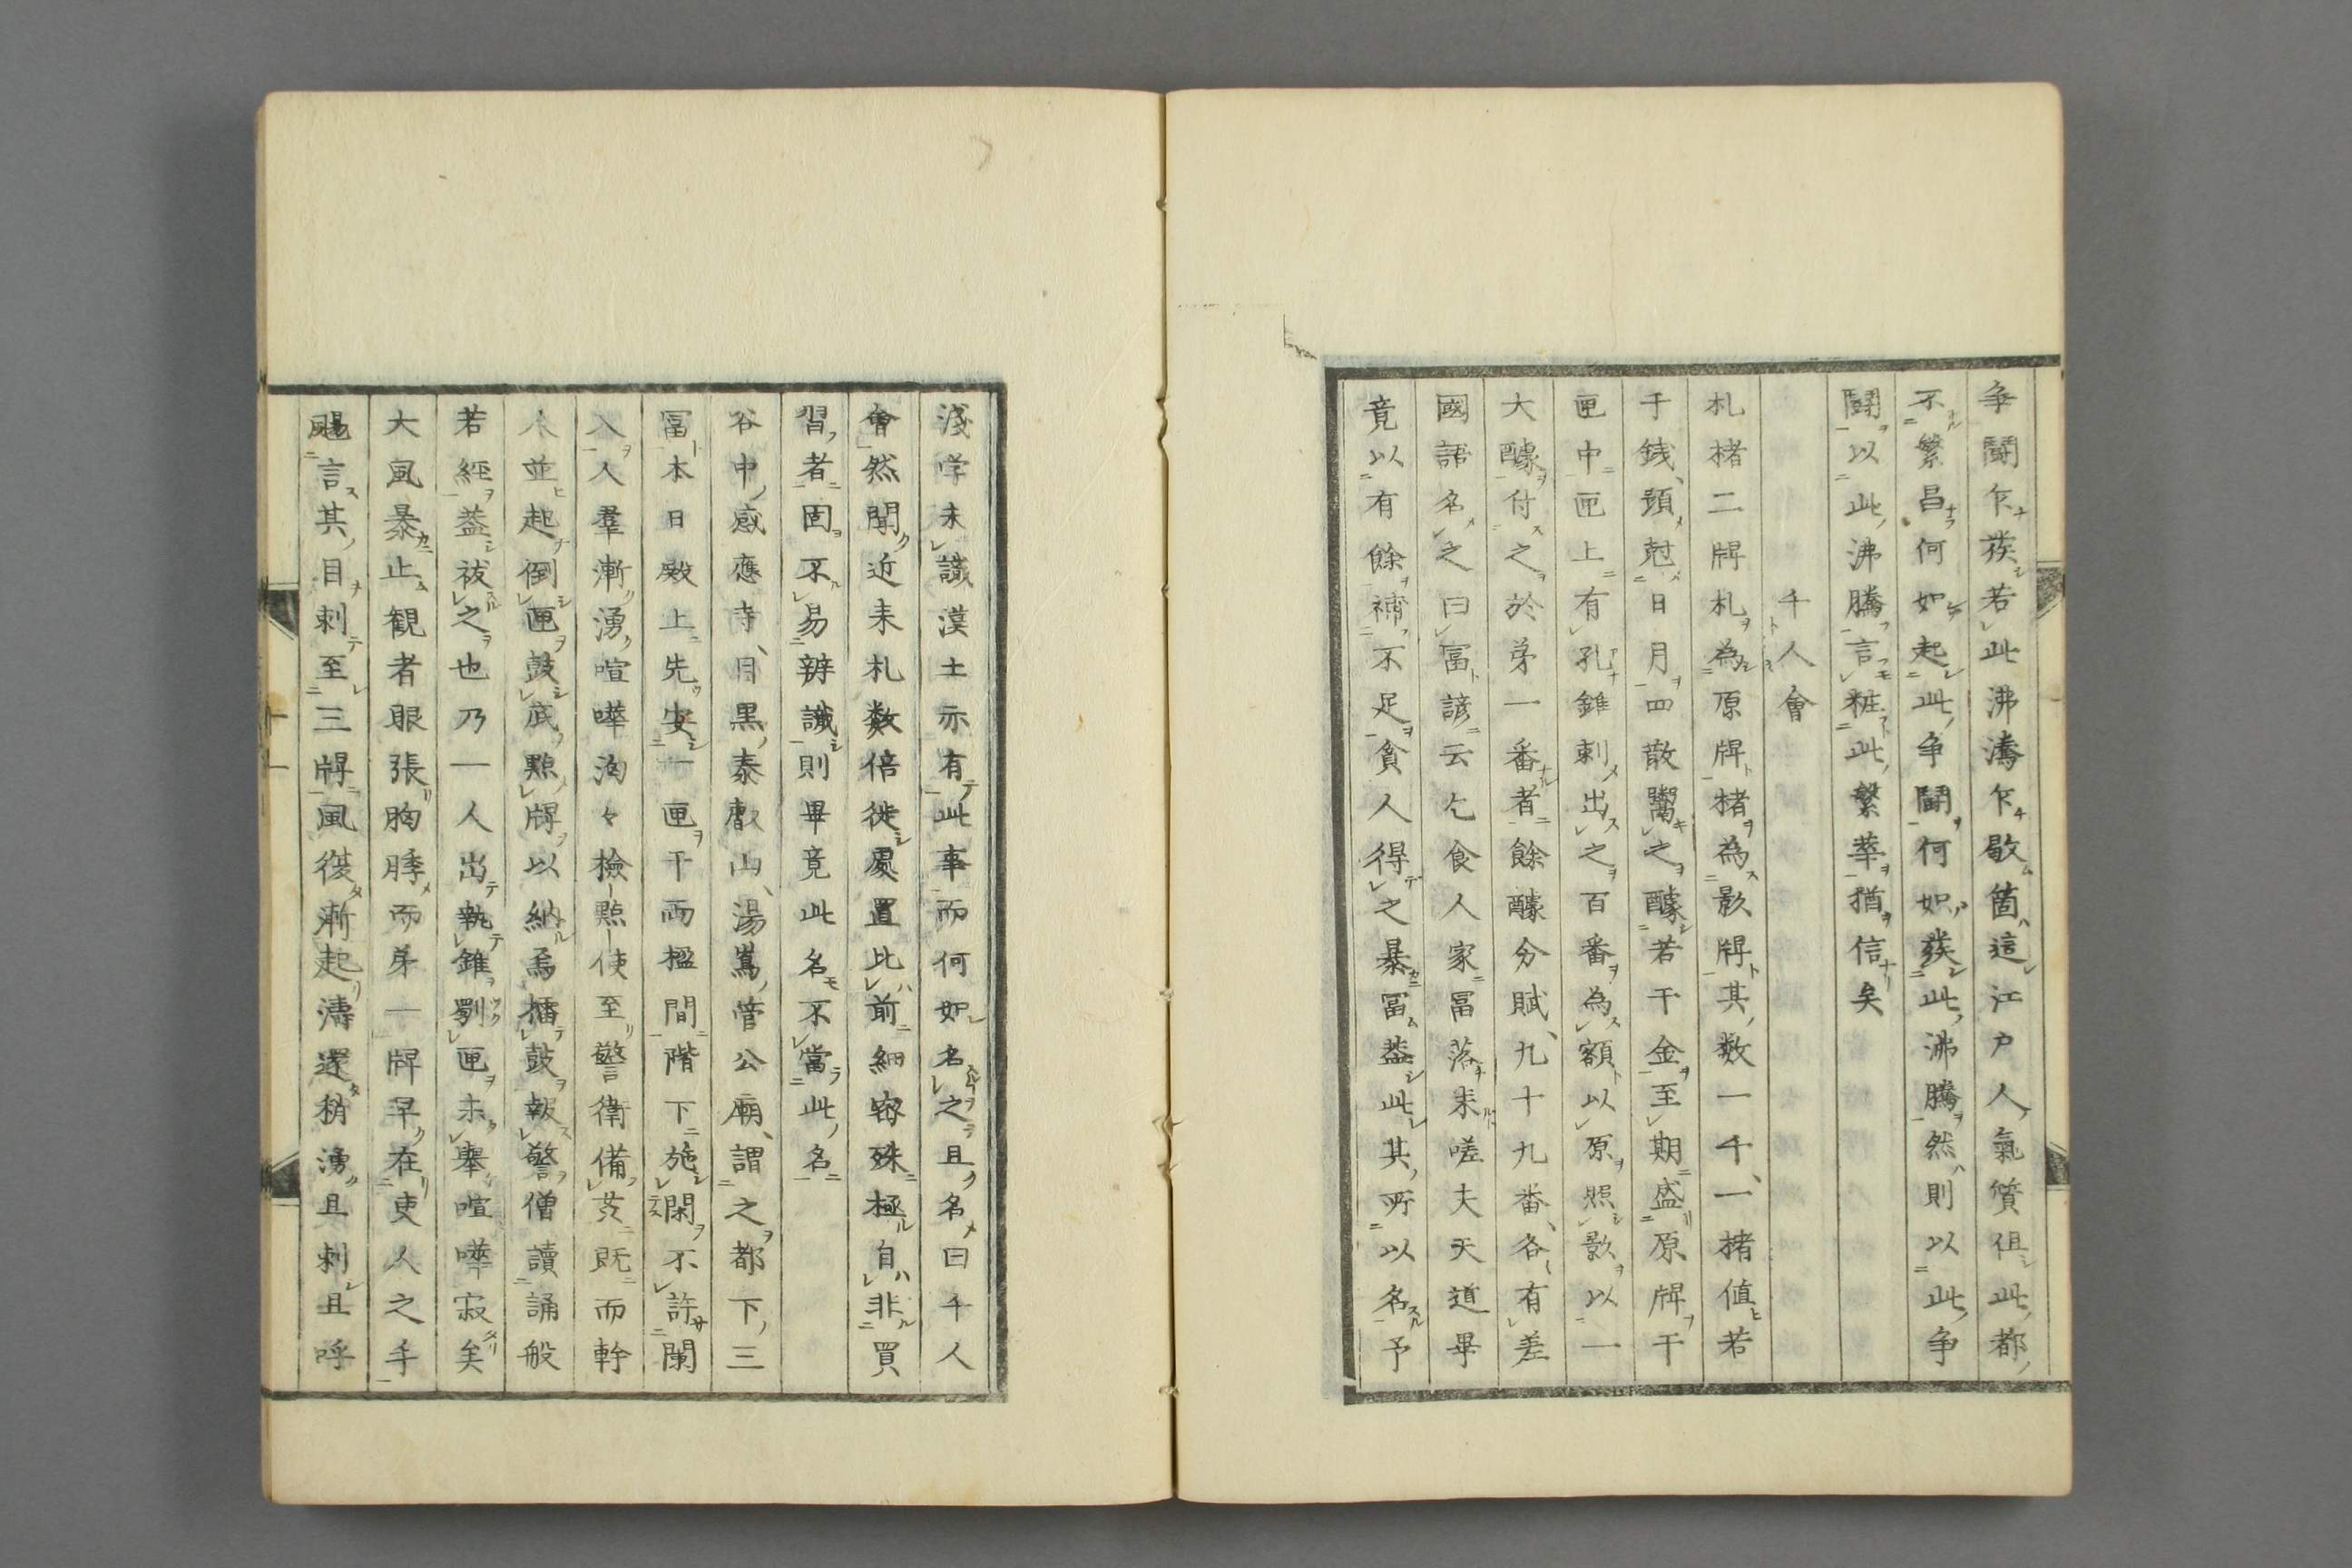 争闘乍蔟若此沸濤乍歇箇這江戸人氣質但此都
不繁昌何如起此争闘何如蔟此沸騰然則以此争
闘以此沸騰言粧此繁華猶信矣
千人會
札楮二牌札為原牌楮為影牌其数一千一楮値若
干銭預尅日月四散鬻之醵若干金至期盛原牌于
匣中匣上有孔錐刺出之百番為額以原照影以一
大醵付之於苐一番者餘醵分賦九十九番各有差
國語名之曰冨諺云乞食人家冨落来嗟夫天道畢
竟以有餘補不足貪人得之暴冨葢此其所以名予
浅学未識漢土亦有此事而何如名之且名曰千人
會然聞近来札数倍蓰處置比前細密殊極自非買
習者固不易辨識則畢竟此名不當此名
谷中感應寺目黒泰叡山湯嶌菅公廟謂之都下三
冨本日殿上先安一匣干両楹間階下施閑不許闌
入人羣漸湧喧嘩洶々檢點使至警衛備茇既而幹
人並起倒匣鼓底點牌以納焉擂鼓報警僧讀誦般
若經葢祓之也乃一人出執錐剟匣未舉喧嘩寂矣
大風暴止観者眼張胸悸而苐一牌早在吏人之手
颺言其目刺至三牌風復漸起濤還稍湧且刺且呼
十一